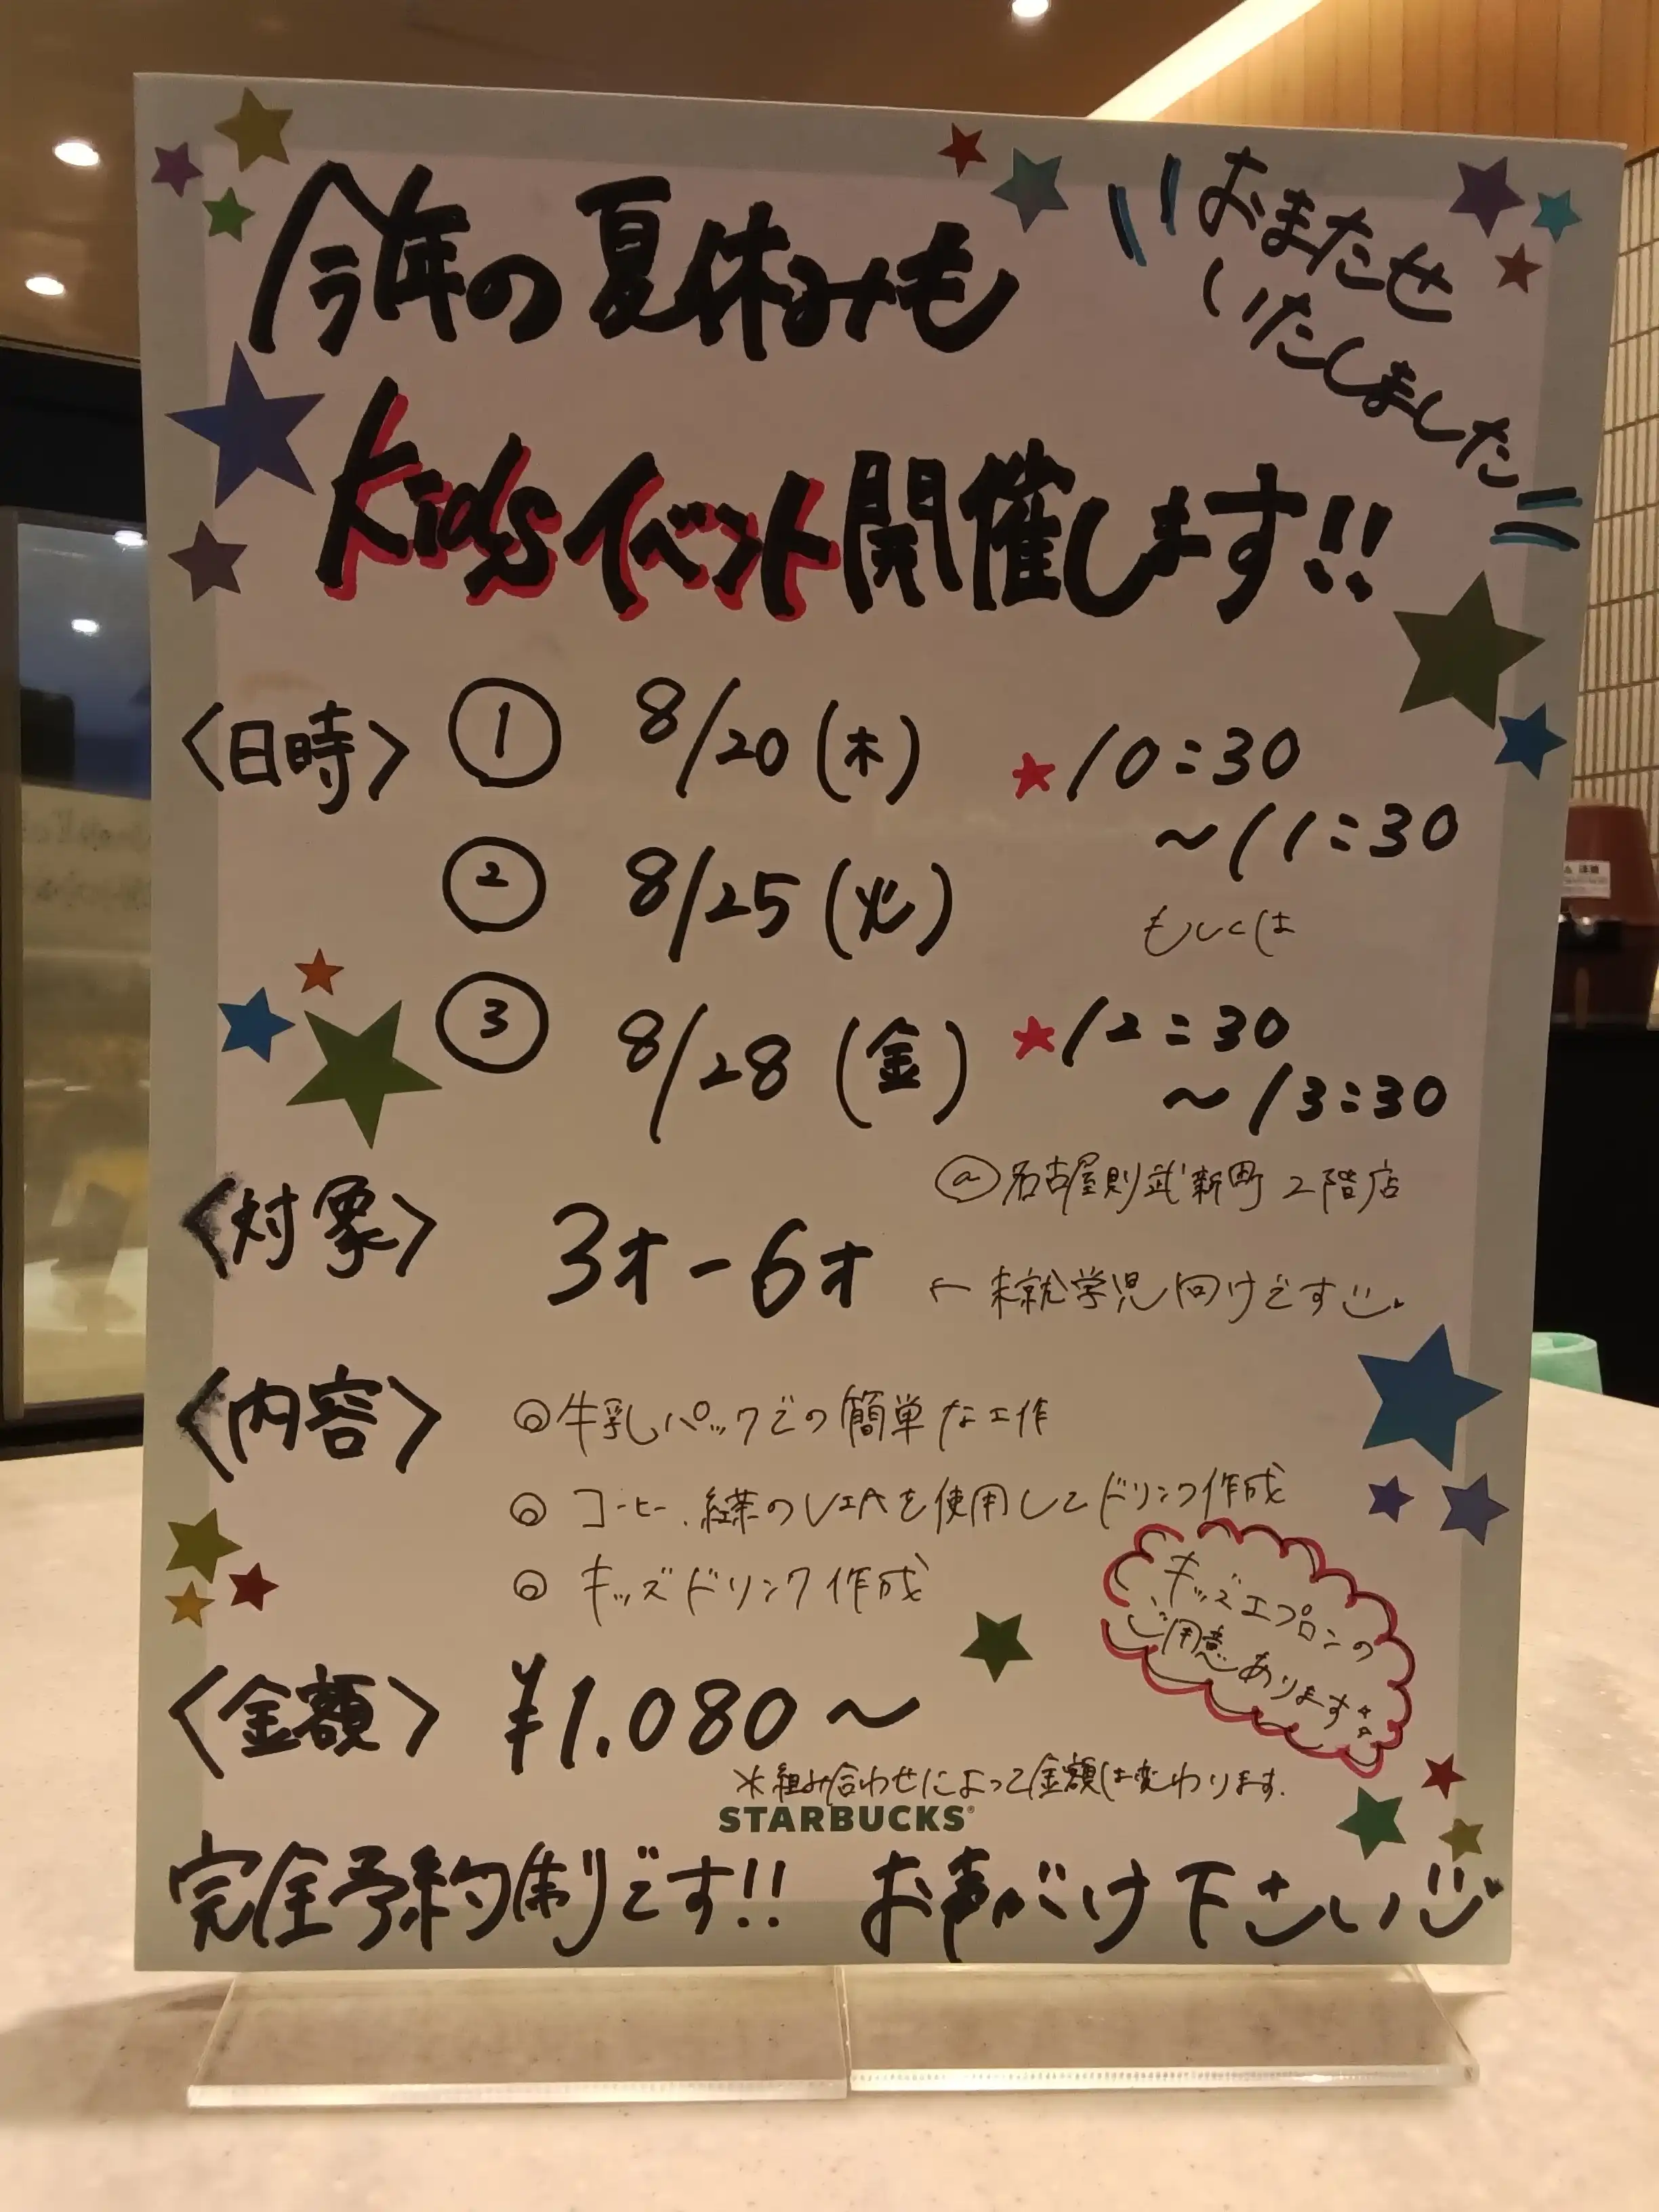 今年の夏休みも
おまたせ
いたしました
Kidsイベント開催します!!
〈日時〉 ① 8/20(木) ★10:30
～11:30
② 8/25(火)
もしくは
③ 8/28(金) ★12:30
～13:30
@名古屋則武新町2階店
〈対象〉 3才-6才 ←未就学児向けです
〈内容〉 ◎牛乳パックでの簡単な工作
◎コーヒー、紅茶のVIAを使用してドリンク作成
◎キッズドリンク作成
キッズエプロンの
ご用意あります
〈金額〉 ¥1.080～
※組み合わせによって金額は変わります.
STARBUCKS®
完全予約制です!! お声がけ下さい